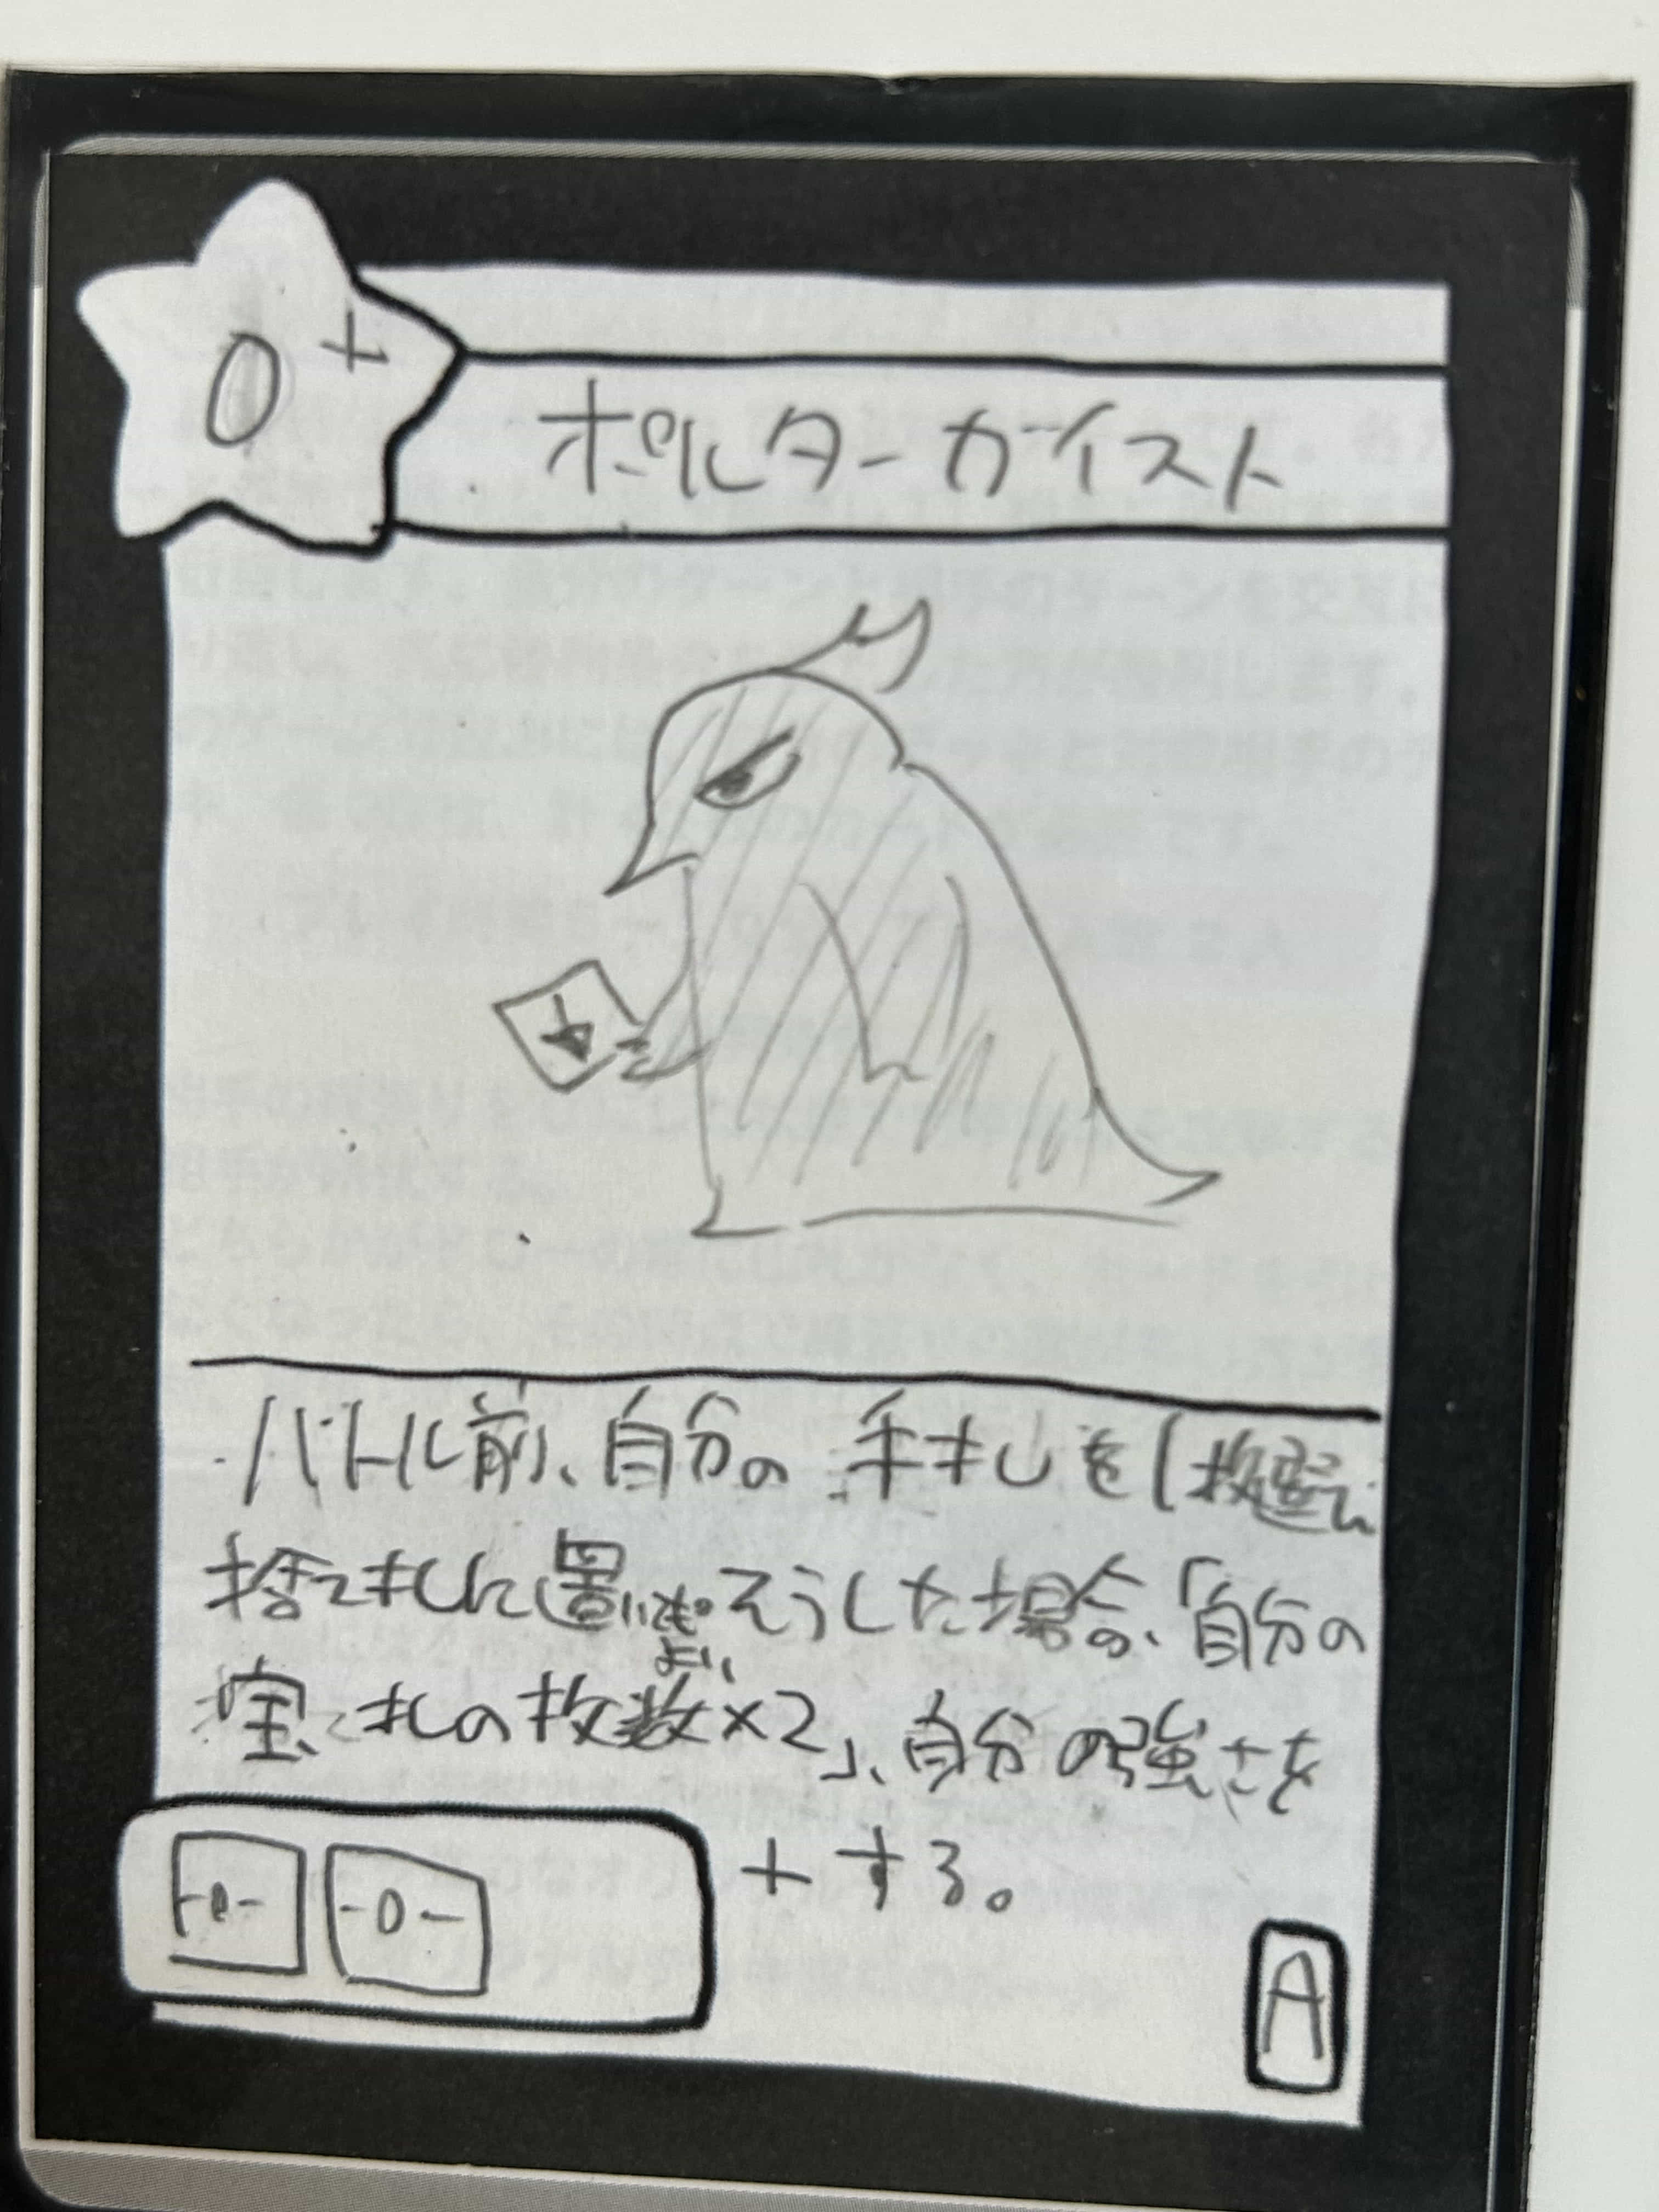 0+
ポルターガイスト
バトル前、自分の手札を1枚選び
捨て札に置いてもよい。そうした場合、「自分の
宝札の枚数×2」、自分の強さを
+する。
-0- -0-
A